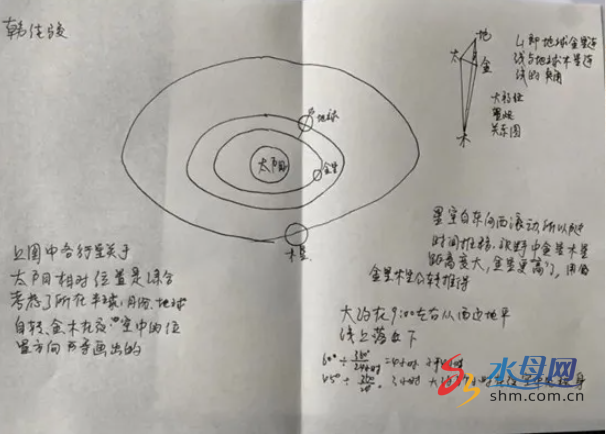 韩佳骏
地
太
金
木
∠1即地球金星连
线与地球木星连
线的夹角
大致位
置
关系图
地球
太阳
金星
木星
上图中各行星关于
太阳相对位置是综合
考虑了所在半球、月份、地球
自转、金木在夜空中的位
置方向等画出的
星空自东向西滚动所以随
时间推移,视野中金星木星
距离变大,金星更高了,用
金星木星公转推得
大约在9:00左右从西边地平
线上落下
60°÷360°/24小时=4小时
45°÷360°/24=3小时
水母网
shm.com.cn